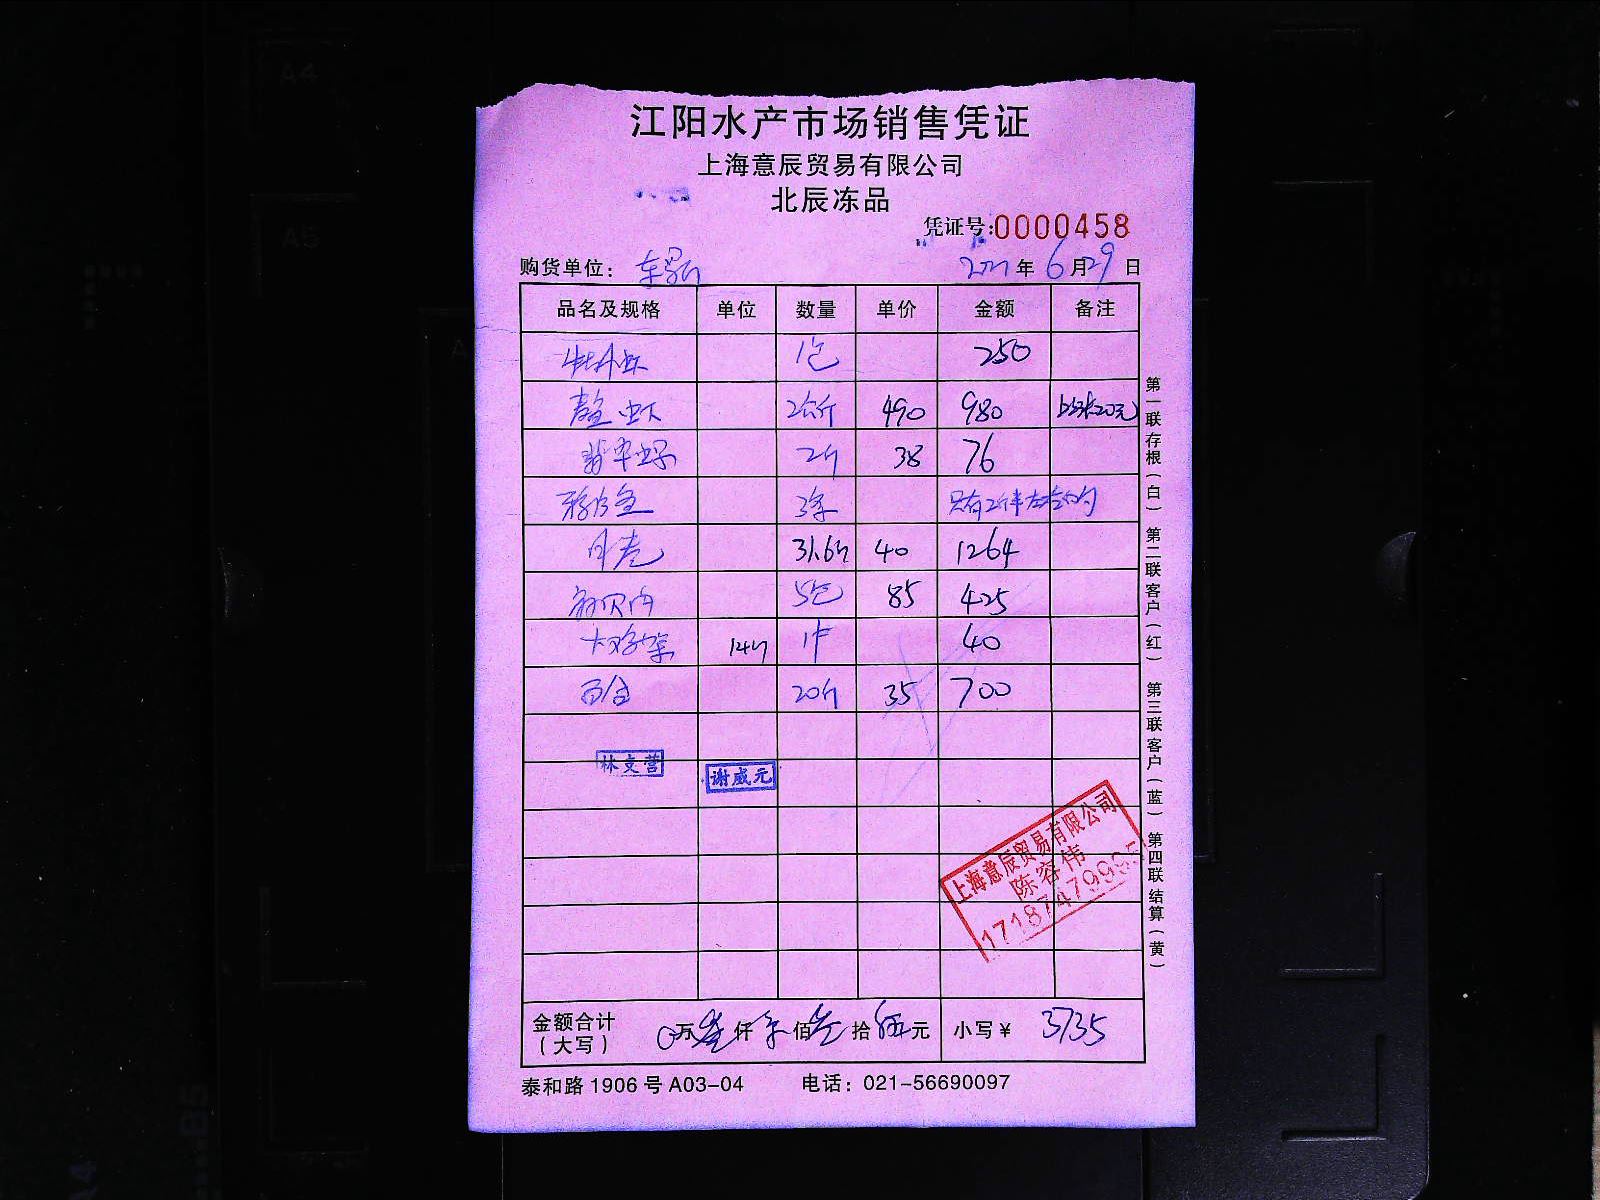 江阳水产市场销售凭证
上海意辰贸易有限公司
北辰冻品
凭证号:0000458
购货单位:
2021年6月29日
品名及规格 单位 数量 单价 金额 备注
牡丹虾 1包 250
虾 2公斤 490 980
翡翠螺 2斤 38 76
3条 只有2斤半左右的
月亮 31.6斤 40 1264
贝肉 5包 85 425
14斤 1件 40
百合 20斤 35 700
林支营
谢成元
上海意辰贸易有限公司
陈容伟
金额合计
(大写)
万 仟 佰 拾 伍元 小写¥ 3735
泰和路1906号A03-04 电话:021-56690097
第一联存根(白) 第二联客户(红) 第三联客户(蓝) 第四联结算(黄)